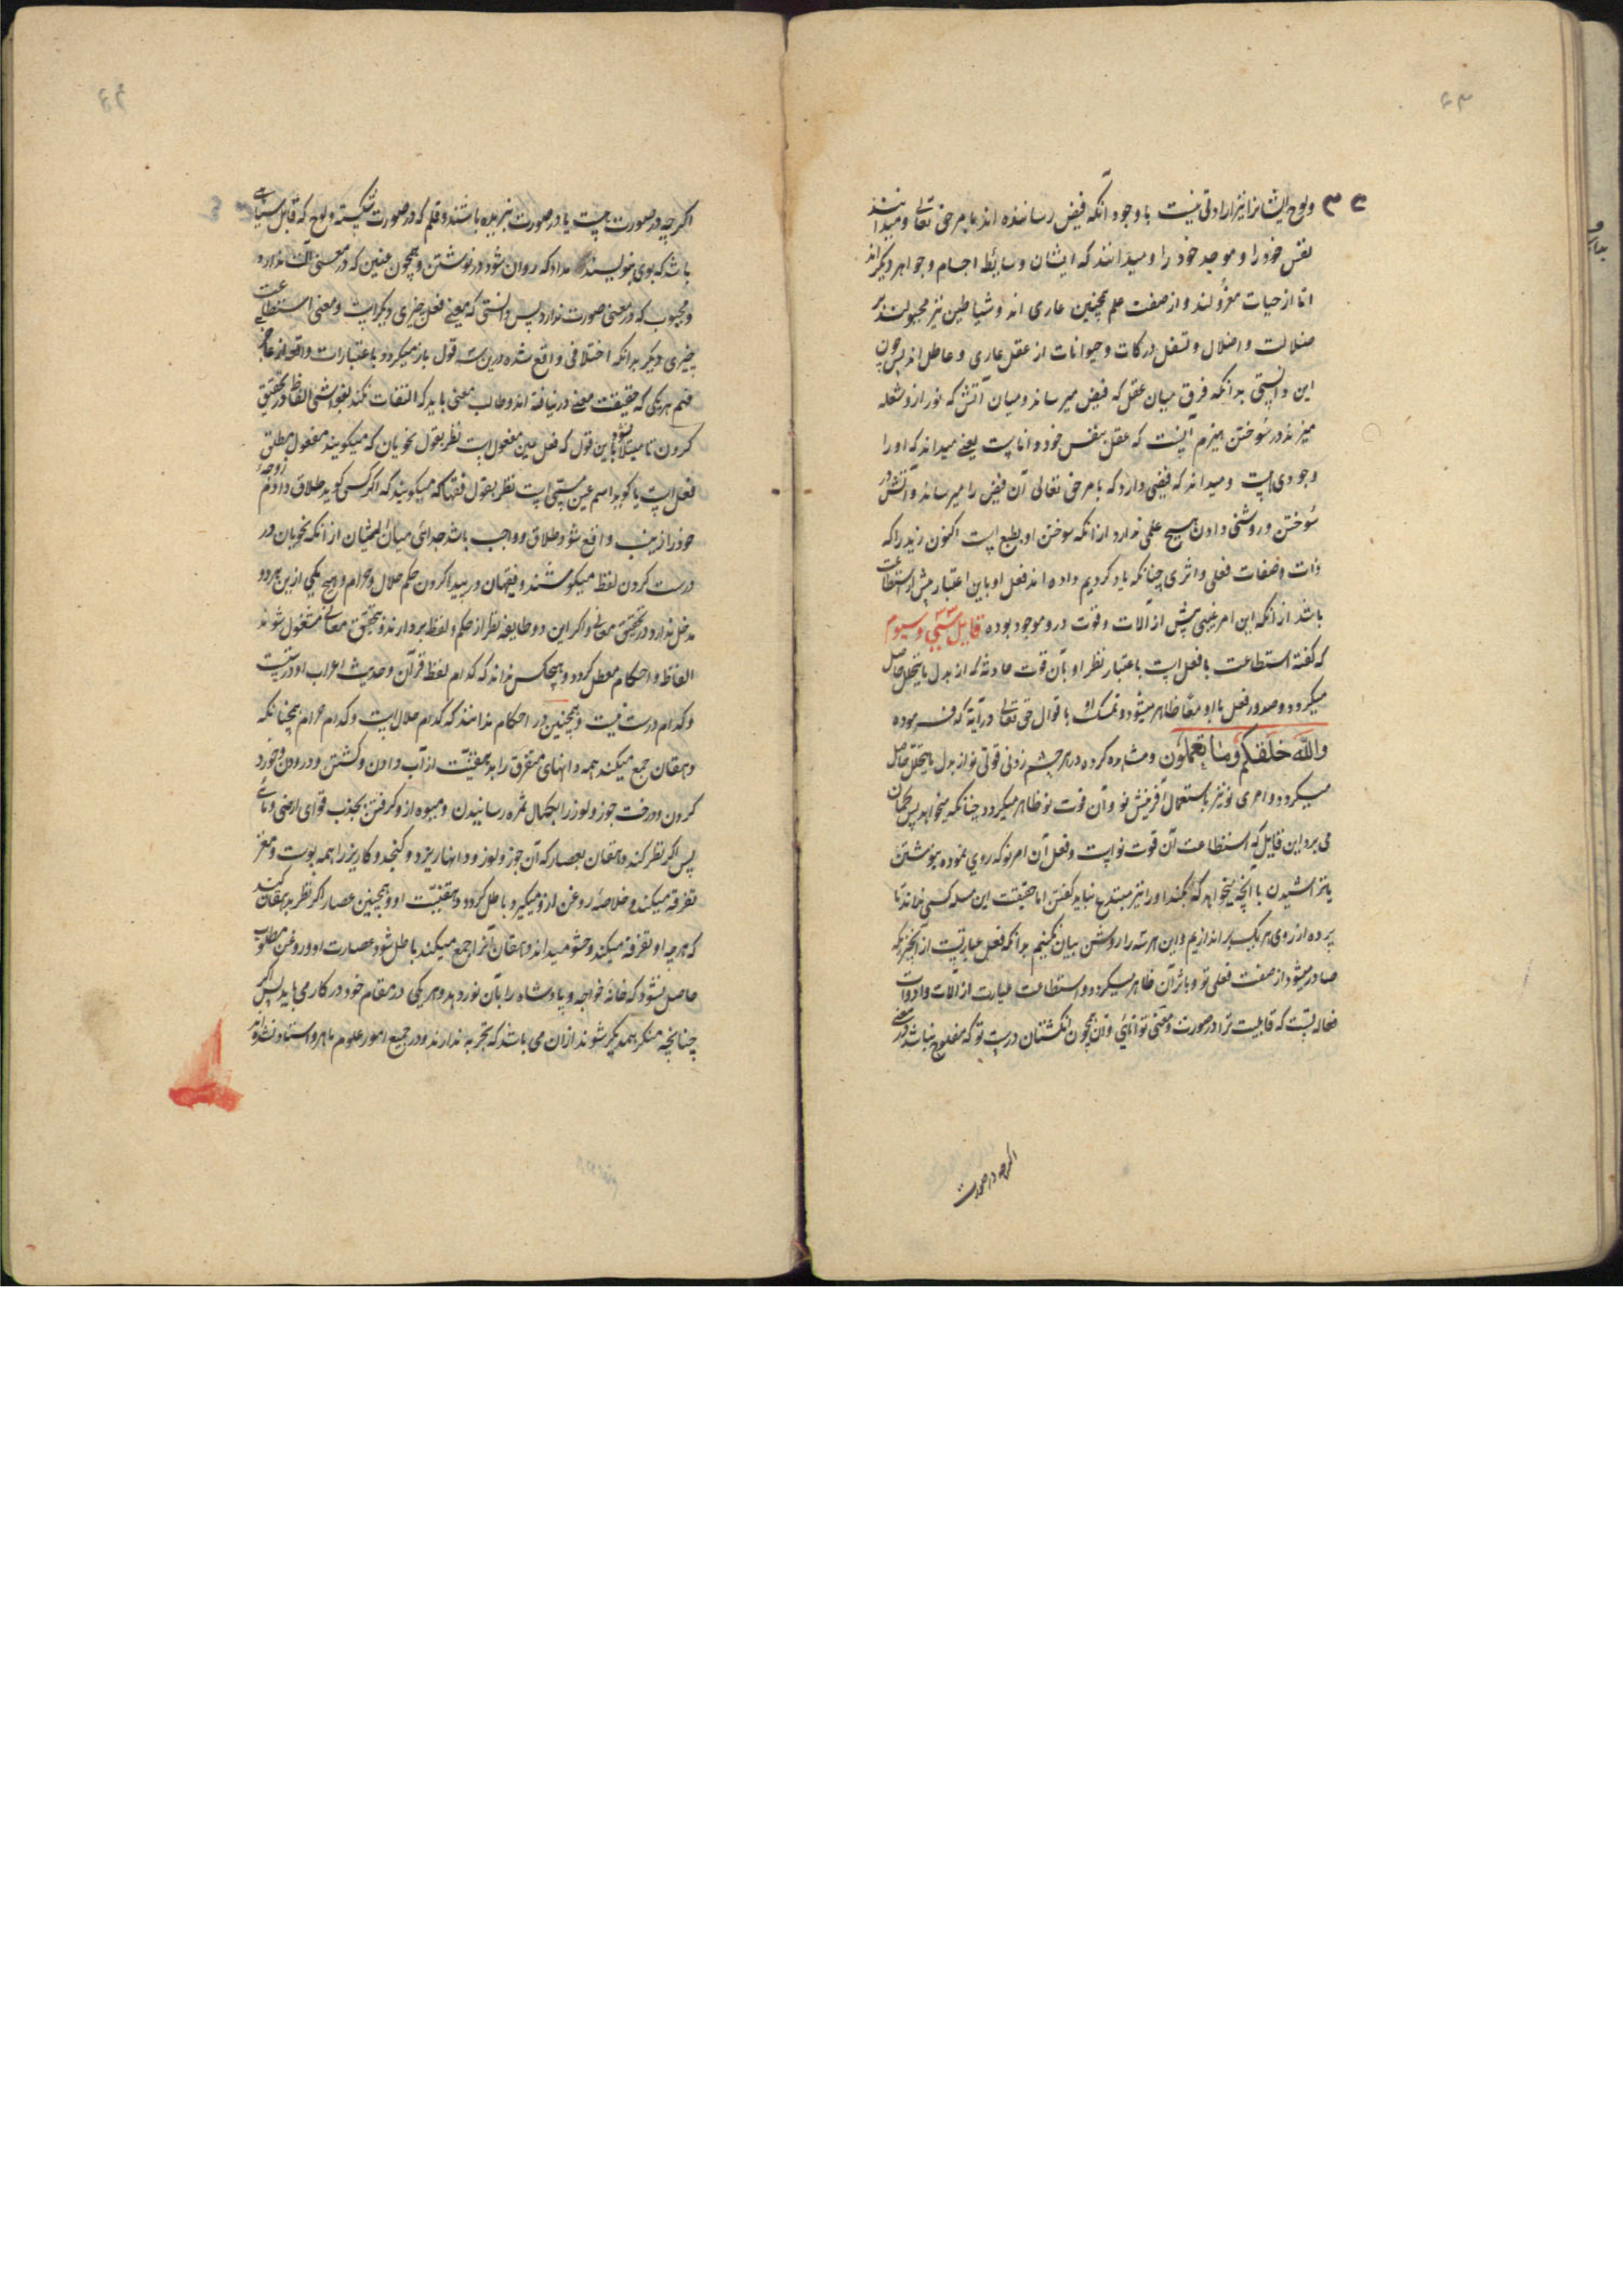 ولوح ایشانرا نیز ارادتی نیست با وجود آنکه فیض رساننده اند بامر حق تعالی و میدانند
نفس خود را و موجد خود را و میدانند که ایشان وسایط اجسام و جواهر دیکر اند
اما از حیات معزولند و از صفت علم همچنین عاری اند و شیاطین نیز مجبولند بر
ضلالت و اضلال و تسفل درکات و حیوانات از عقل عاری و عاطل اند پس چون
این دانستی بدانکه فرق میان عقل که فیض میرساند و میان آتش که نور ازو شعله
میزند در سوختن هیزم آنست که عقل بنفس خود داناست یعنی میداند که او را
وجودی هست و میداند که فیضی دارد که بامر حق تعالی آن فیض را میرساند و آتش در
سوختن و روشنی دادن هیچ علمی ندارد از انکه سوختن او بطبع است اکنون زید را که
ذات و صفات فعلی و اثری چنانکه یاد کردیم داده اند فعل او باین اعتبار پیش از استطاعت
باشد از انکه این امر غیبی پیش از آلات و قوت درو موجود بوده قایل سیوم
که کفته استطاعت با فعل است باعتبار نظر او بآن قوت حادثه که از بدل ما یتحلل حاصل
میکردد و صدور فعل با او معا ظاهر میشود و تمسک باقوال حق تعالی در آیة که فرموده
والله خلقکم وما تعملون و مشاهده کرده در هر چشم زدنی قوتی نو از بدل ما یتحلل حاصل
میکردد و امری نو نیز باستعمال آفرینش نو و آن قوت نو ظاهر میکردد چنانکه میخواهد پس کمان
می برد این قایل که استطاعت آن قوت نو است و فعل آن امر نو که روی نموده بنوشتن
یا تراشیدن یا آنچه میخواهد که بکند او را نیز مبتدع نباید کفتن اما حقیقت این مسله کسی نداند تا
پرده از روی هر یک بر اندازیم و این هر سه را روشن بیان نکنیم بدانکه فعل عبارتست از آنچیز که
صادر میشود از صفت فعلی تو و باثر آن ظاهر میکردد و استطاعت عبارت از آلات و ادوات
که قابلیت ترا در صورت و معنی توانائی و آن همچون انکشتان دست تو که مفلوج نباشد در معنی
اکر چه در صورت
اکر چه در صورت هست یا در صورت نیز بریده باشند و قلم که در صورت شکسته و لوح که قابل سیاهی
باشد که بوی بنویسند مداد که روان شود در نوشتن و همچون عنین که در معنی آلت ندارد
و مجبوب که در معنی صورت ندارد پس دانستی که معنی فعل چیزی دیکر است و معنی استطاعت
چیزی دیکر بدانکه اختلافی واقع شده درین سه قول باز میکردد باعتبارات واقعه از عدم
فهم هر یکی که حقیقت معنی در نیافته اند و طالب معنی باید که التفات نکند بغواشی الفاظ در تحقیق
کردن تا مبتلا نشود باین قول که فعل عین مفعول است نظر بقول نحویان که میکویند مفعول مطلق
فعل است یا کوید اسم عین مسمی است نظر بقول فقها که میکویند که اکر کسی کوید طلاق دادم زوجه
خود را زینب واقع شود طلاق و واجب باشد جدائی میان ایشان از انکه نحویان در
درست کردن لفظ میکوشند و فقیهان در پیدا کردن حکم حلال و حرام و هیچ یکی ازین هر دو
مدخل ندارد در تحقیق معانی و اکر این دو طایفه نظر از حکم و لفظ بردارند و بتحقیق معانی مشغول شوند
الفاظ و احکام معطل کردد و هیچکس نداند که کدام لفظ قرآن و حدیث اعراب او درست
و کدام درست نیست و همچنین در احکام ندانند که کدام حلال است و کدام حرام همچنانکه
دهقان جمع میکند همه دانهای متفرق را بدهقنیت از آب دادن و کشتن و درودن و خورد
کردن و درخت جوز و لوز را بکمال ثمره رسانیدن و میوه ازو کرفتن بجذب قوای ارضی و مائی
پس اکر نظر کند دهقان بعصار که آن جوز و لوز و دانها ریزد و کنجد و کاریز را همه پوست و مغز
تفرقه میکند و خلاصه روغن ازو میکیرد باطل کردد دهقنیت او و همچنین عصار اکر نظر بدهقان کند
که هر چه او تفرقه میکند و حشو میداند دهقان آنرا جمع میکند باطل شود عصارت او و روغن مطلوب
حاصل نشود که خانه خواجه و پادشاه را بآن نور دهد و هر یکی در مقام خود در کار می باید پس اکر
چنانچه منکر همدیکر شوند از ان می باشد که تجربه ندارند و در جمیع امور علوم ماهر و استاد نشده